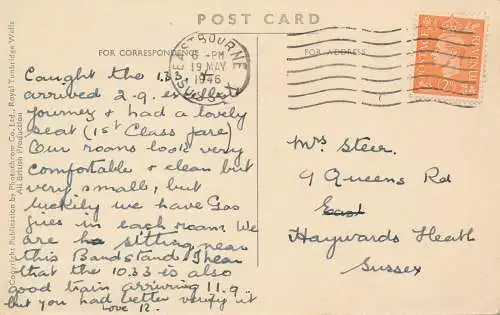 POST CARD
FOR CORRESPONDENCE
FOR ADDRESS
EASTBOURNE
6 - PM
19 MAY
1946
SUSSEX
POSTAGE
REVENUE
2D
Copyright. Publication by Photochrom Co., Ltd., Royal Tunbridge Wells
All British Production
Caught the 1.33 &
arrived 2-9. excellent
journey & had a lovely
seat (1st Class fare)
Our rooms look very
comfortable & clean but
very small, but
luckily we have Gas
fires in each room We
are sitting near
this Bandstand. I hear
that the 10.33 is also
good train arriving 11.9
but you had better verify it
love R.
Mrs Steer.
9 Queens Rd
East
Haywards Heath
Sussex